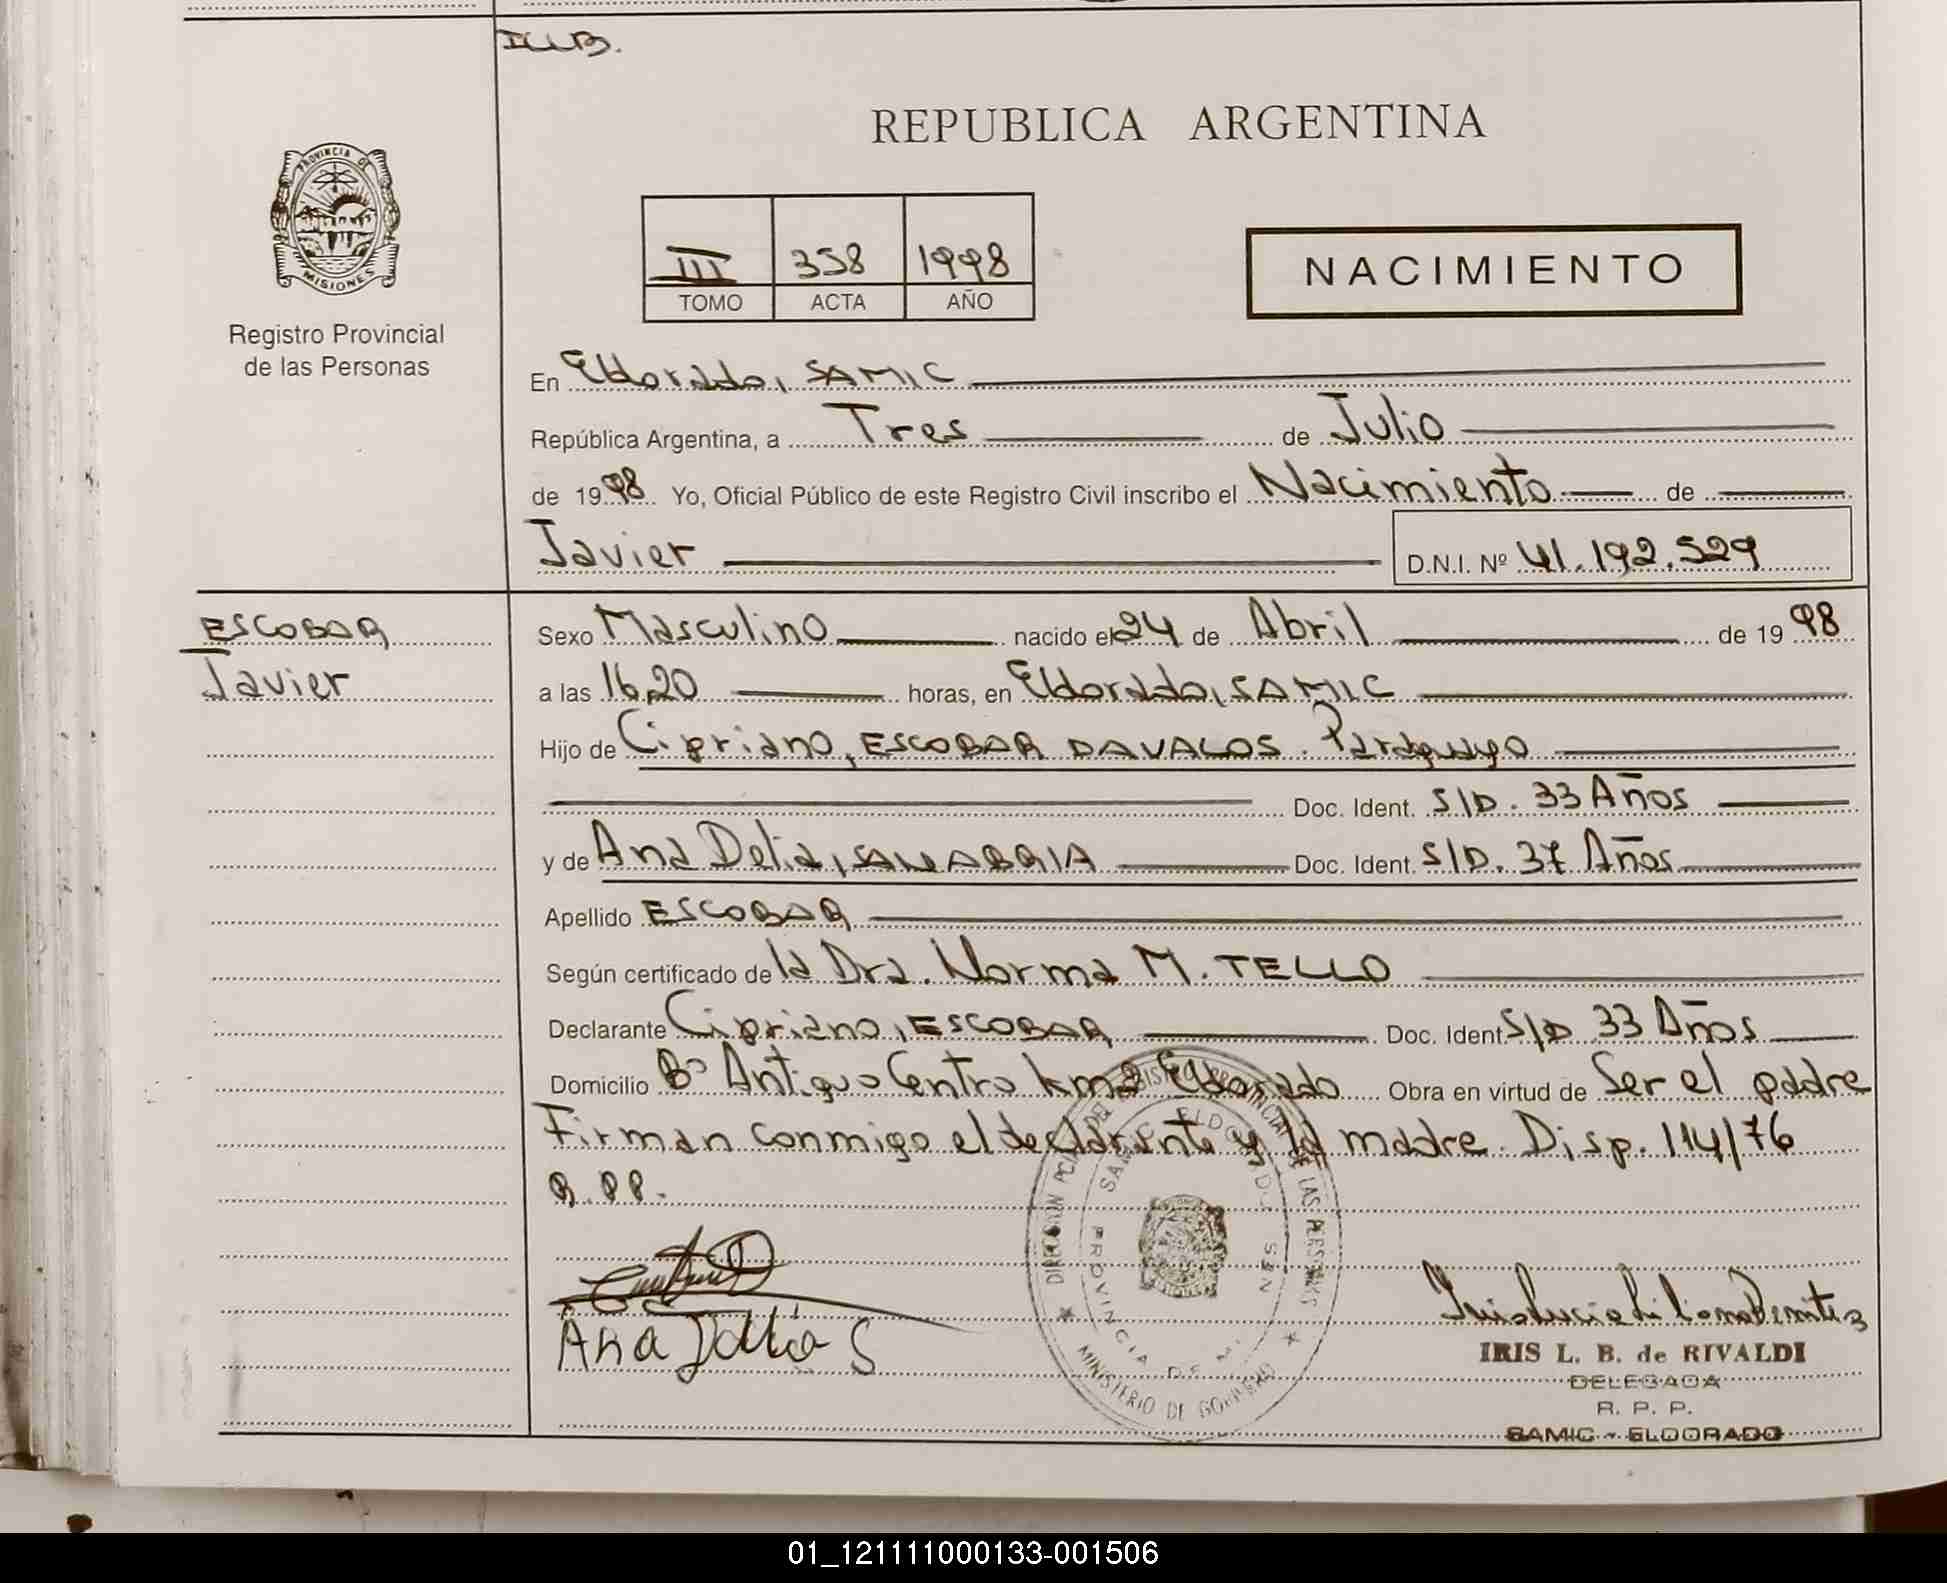 I.L.B.
PROVINCIA DE
MISIONES
Registro Provincial
de las Personas
REPUBLICA ARGENTINA
III 358 1998
TOMO ACTA AÑO
NACIMIENTO
En Eldorado, SAMIC
República Argentina, a Tres de Julio
de 1998 Yo, Oficial Público de este Registro Civil inscribo el Nacimiento de
Javier D.N.I. Nº 41.192.529
ESCOBAR
Javier
Sexo Masculino nacido el 24 de Abril de 1998
a las 16,20 horas, en Eldorado, SAMIC
Hijo de Cipriano, ESCOBAR DAVALOS. Paraguayo
Doc. Ident. S/D. 33 Años
y de Ana Delia, SANABRIA Doc. Ident. S/D. 37 Años
Apellido ESCOBAR
Según certificado de la Dra. Norma M. TELLO
Declarante Cipriano, ESCOBAR Doc. Ident. S/D 33 Años
Domicilio Bº Antiguo Centro km2 Eldorado Obra en virtud de Ser el padre
Firman conmigo el declarante y la madre. Disp. 114/76
R.PP.
Ana Delia S
MINISTERIO DE GOBIERNO
IRIS L. B. de RIVALDI
DELEGADA
R. P. P.
SAMIC - ELDORADO
01_121111000133-001506